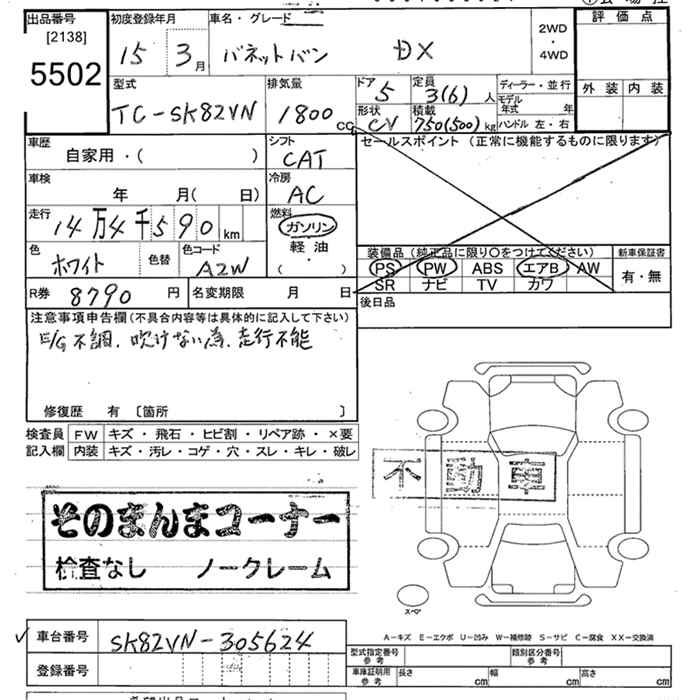 出品番号 初度登録年月 車名・グレード 評価点
[2138] 15 3月 バネットバン DX 2WD・4WD
5502 外装 内装
型式 排気量 ドア 定員 ディーラー・並行
TC-SK82VN 1800cc 5 3(6)人 モデル年式 年
形状 積載 ハンドル 左・右
CV 750(500)kg
車歴 シフト セールスポイント (正常に機能するものに限ります)
自家用・( ) CAT
車検 冷房
年 月(日) AC
走行 燃料
14万4千590km ガソリン
軽油
( ・ )
色 色替 色コード 装備品(純正品に限り○をつけてください) 新車保証書
ホワイト A2W PS PW ABS エアB AW 有・無
SR ナビ TV カワ
R券 8790円 名変期限 月 日 後日品
注意事項申告欄(不具合内容等は具体的に記入して下さい)
E/G不調、吹けない為、走行不能
修復歴 有 〔箇所 〕
検査員 FW キズ・飛石・ヒビ割・リペア跡・×要
記入欄 内装 キズ・汚レ・コゲ・穴・スレ・キレ・破レ
不動車
そのまんまコーナー
検査なし ノークレーム
スペア
A-キズ E-エクボ U-凹み W-補修跡 S-サビ C-腐食 XX-交換済
✓ 車台番号 SK82VN-305624
型式指定番号 参考 類別区分番号 参考
登録番号 車庫証明用 参考 長さ cm 幅 cm 高さ cm